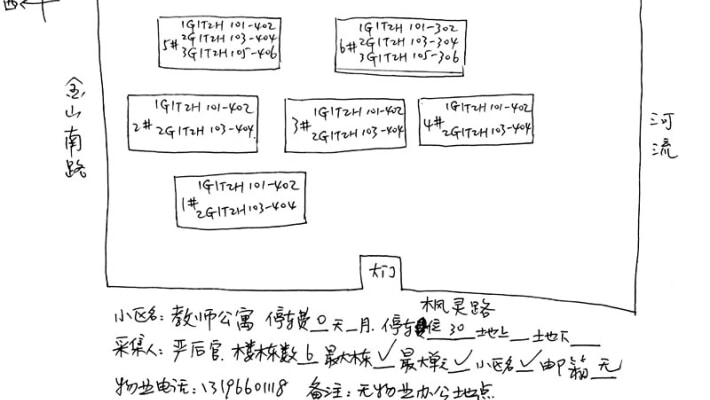 西
5#
1G1T2H 101-402
2G1T2H 103-404
3G1T2H 105-406
6#
1G1T2H 101-302
2G1T2H 103-304
3G1T2H 105-306
金山南路
2#
1G1T2H 101-402
2G1T2H 103-404
3#
1G1T2H 101-402
2G1T2H 103-404
4#
1G1T2H 101-402
2G1T2H 103-404
河流
1#
1G1T2H 101-402
2G1T2H 103-404
大门
枫灵路
小区名:教师公寓 停车费 0 天 月. 停车位 30 地上 土地下
采集人:严后官 楼栋数 6 最大栋 ✓ 最大单元 ✓ 小区名 ✓ 邮箱 无
物业电话:13196601118 备注:无物业办公地点